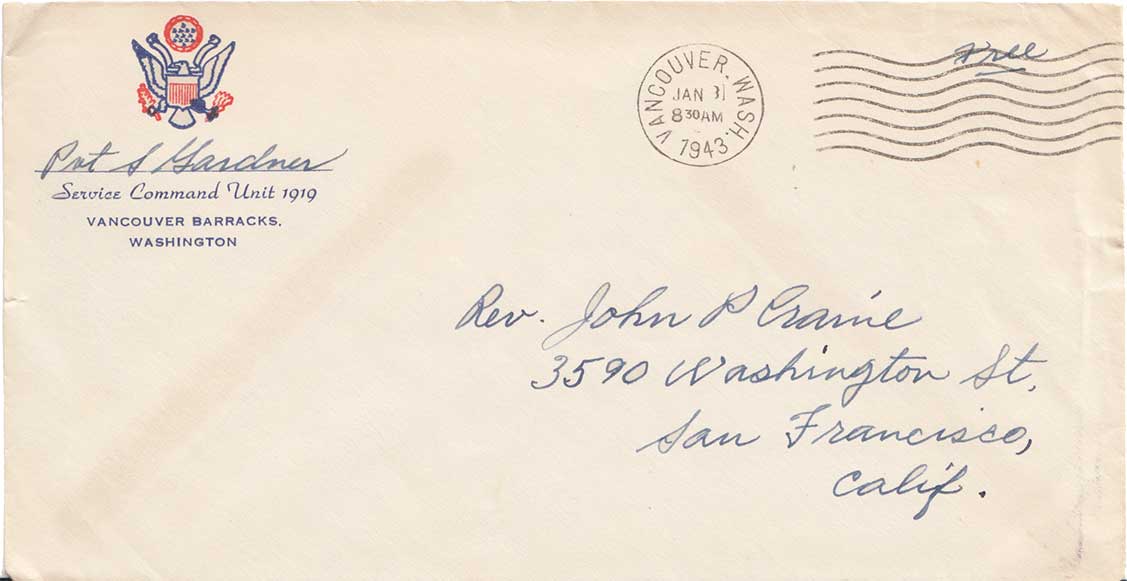 Pvt S Gardner
Service Command Unit 1919
VANCOUVER BARRACKS,
WASHINGTON
VANCOUVER, WASH.
JAN 31
8 30 AM
1943
Free
Rev. John P Craine
3590 Washington St,
San Francisco,
Calif.